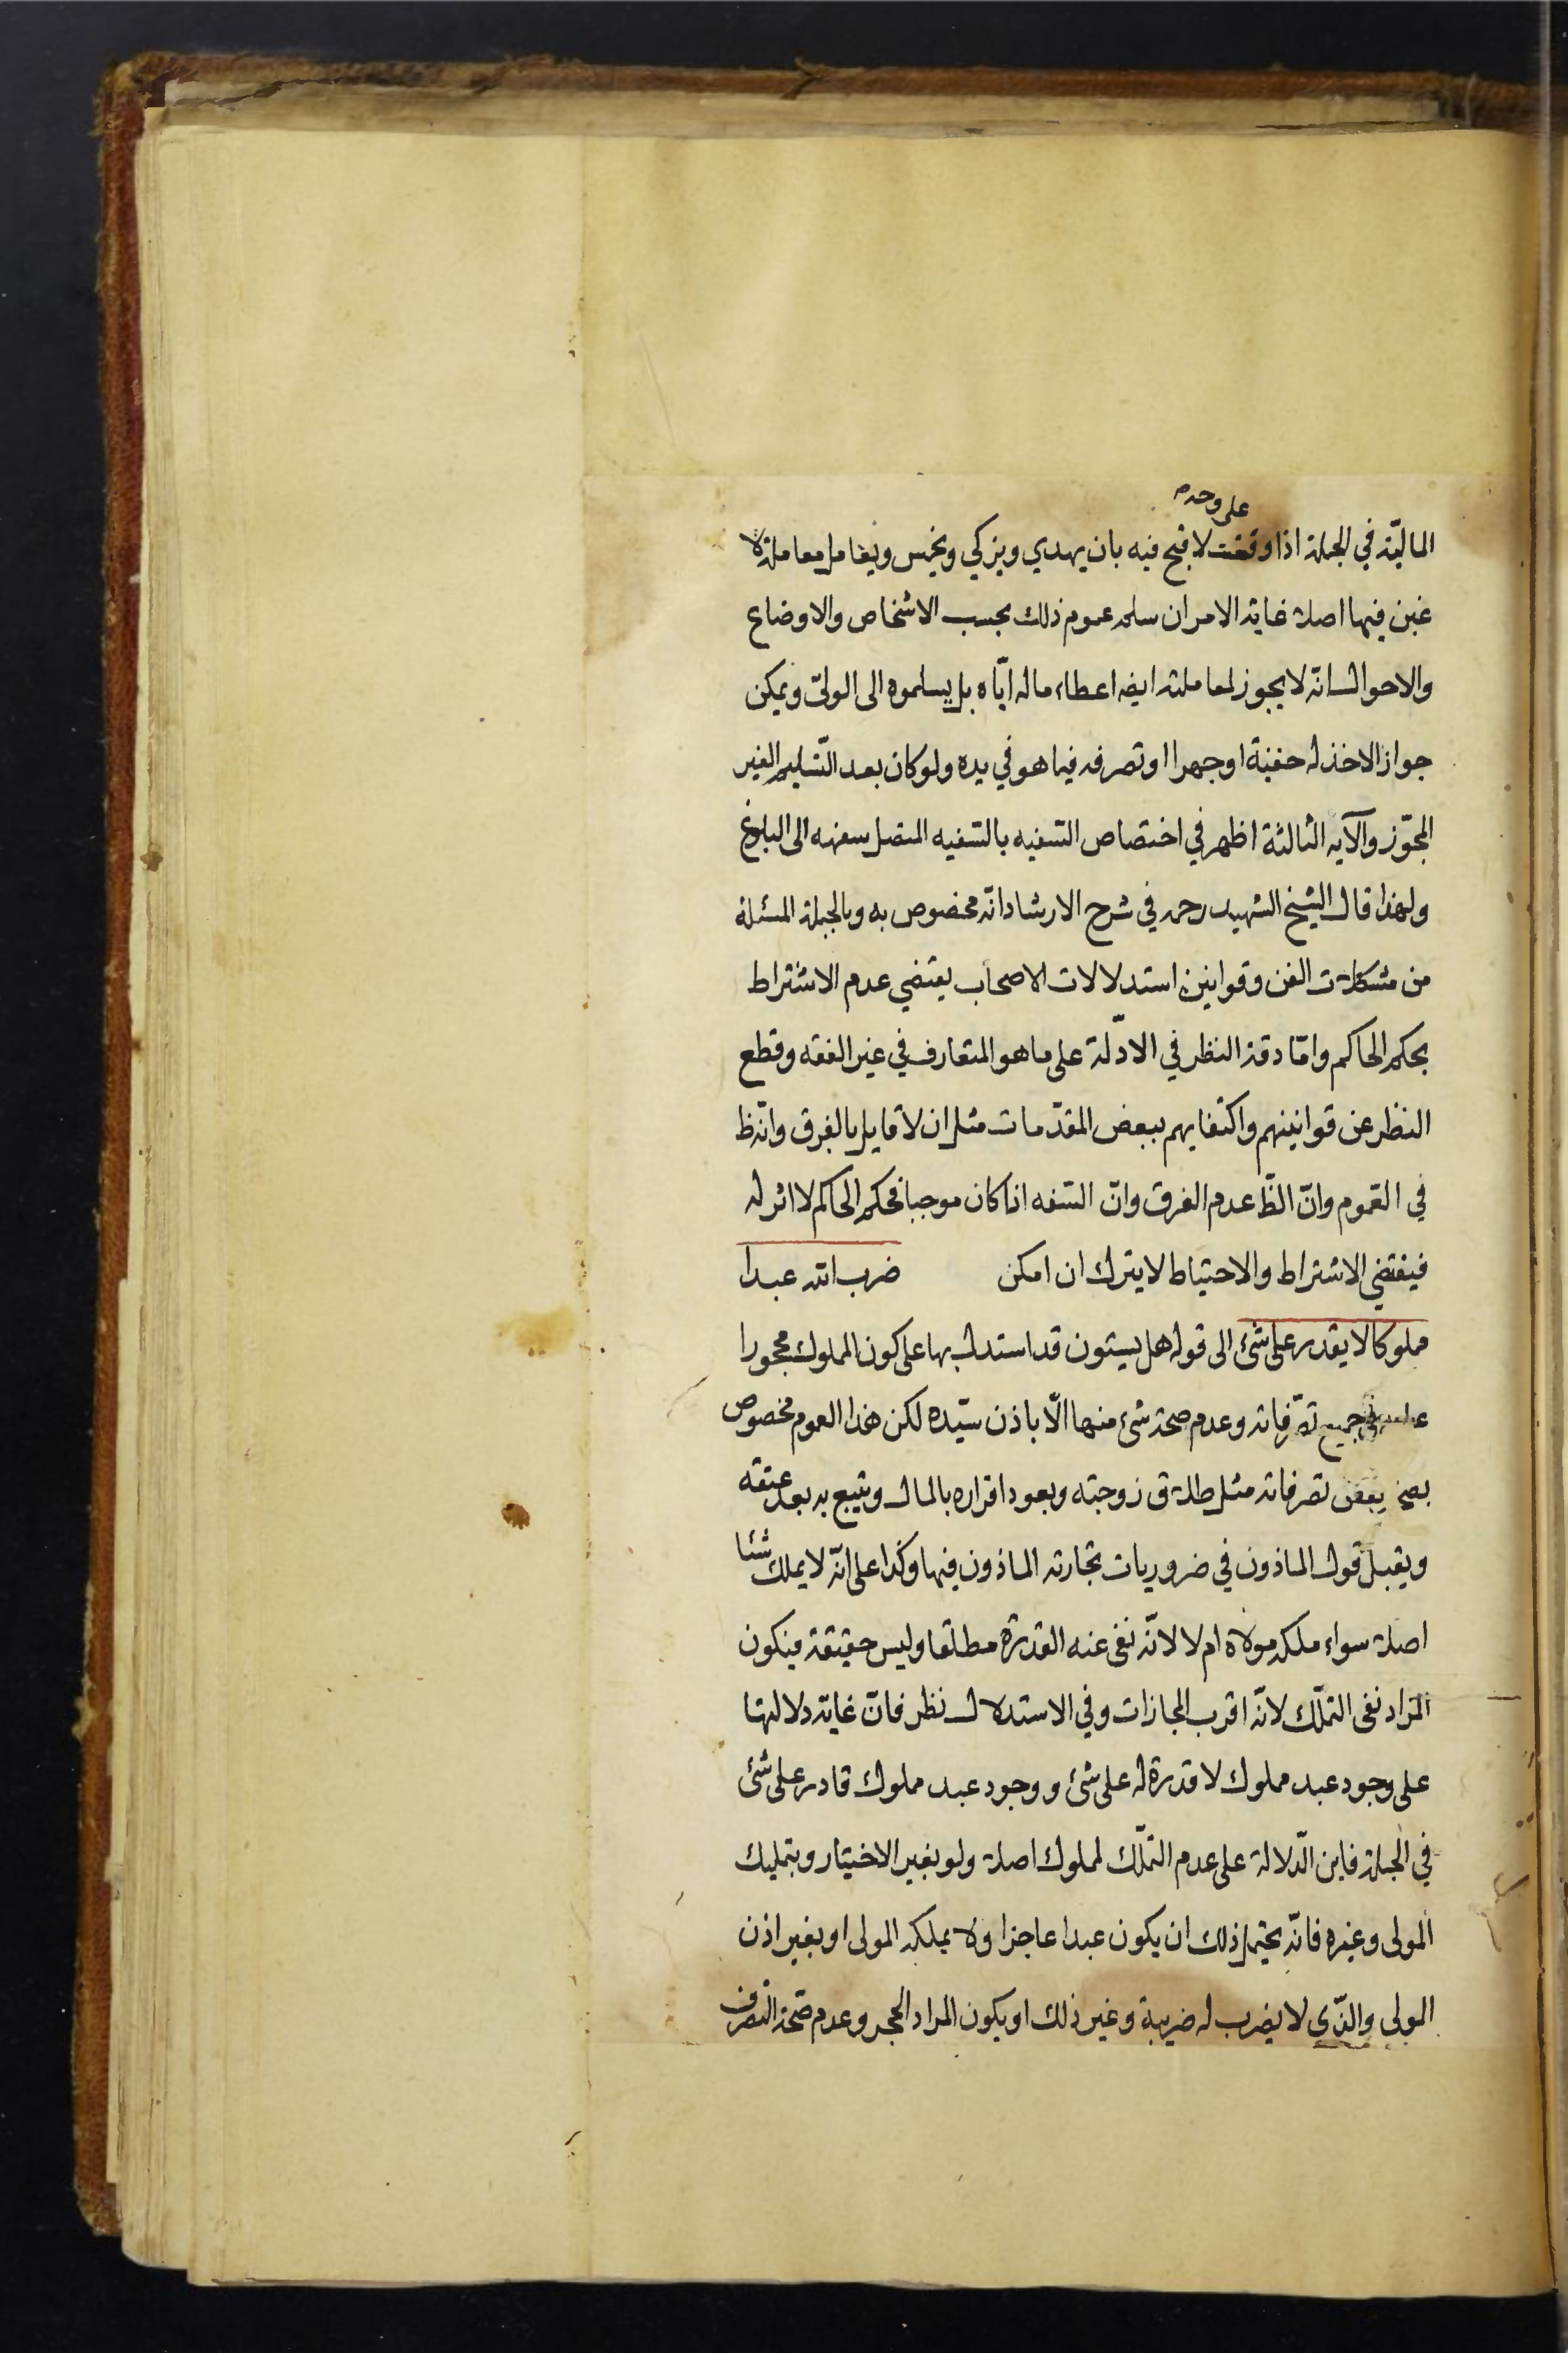 على وجه
المالیّة في الجملة اذا وقعت لا قبح فيه بان يهدي ويزكي ويخمس ويعامل معاملة لا
غبن فيها اصلا غاية الامر ان سلم عموم ذلك بحسب الاشخاص والاوضاع
والاحوال انّه لا يجوز لمعاملته ايضه اعطاء ماله ايّاه بل يسلموه الى الولىّ ويمكن
جواز الاخذ له خفية او جهرا او تصرفه فيما هو في يده ولو كان بعد التّسليم الغير
المجوّز والآية الثالثة اظهر في اختصاص السّفيه بالسّفيه المتصل سفهه الى البلوغ
ولهذا قال الشيخ الشهيد رحمه في شرح الارشاد انّه مخصوص به وبالجملة المسئلة
من مشكلات الفن وقوانين استدلالات الاصحاب يقتضي عدم الاشتراط
بحكم الحاكم وامّا دقة النظر في الادّلة على ما هو المتعارف في غير الفقه وقطع
النظر عن قوانينهم واكتفايهم ببعض المقدّمات مثل ان لا قايل بالفرق وانّه ظ
في العموم وانّ الظّ عدم الفرق وانّ السّفه اذا كان موجبا فحكم الحاكم لا اثر له
فيقتضي الاشتراط والاحتياط لا يترك ان امكن ضرب الله عبدا
مملوكا لا يقدر على شئ الى قوله هل يستون قد استدل بها على كون المملوك محجورا
عليه في جميع تصّرفاته وعدم صحة شئ منها الّا باذن سيّده لكن هذا العموم مخصوص
بصحّة بعض تصرفاته مثل طلاق زوجته وبعود اقراره بالمال ويتبع به بعد عتقه
ويقبل قول الماذون في ضروريات تجارته الماذون فيها وكذا على انّه لا يملك شئا
اصلا سواء ملكه مولاه ام لا لانّه نفى عنه القدرة مطلقا وليس حقيقة فيكون
المراد نفى التملّك لانّه اقرب المجازات وفي الاستدلال نظر فانّ غاية دلالتها
على وجود عبد مملوك لا قدرة له على شئ و وجود عبد مملوك قادر على شئ
في الجملة فاين الدّلالة على عدم التملّك لمملوك اصلا ولو بغير الاختيار وبتمليك
المولى وغيره فانّه يحتمل ذلك ان يكون عبدا عاجزا ولا يملكه المولى او بغير اذن
المولى والذّي لا يضرب له ضريبة وغير ذلك او يكون المراد الحجر وعدم صّحة التصّرف